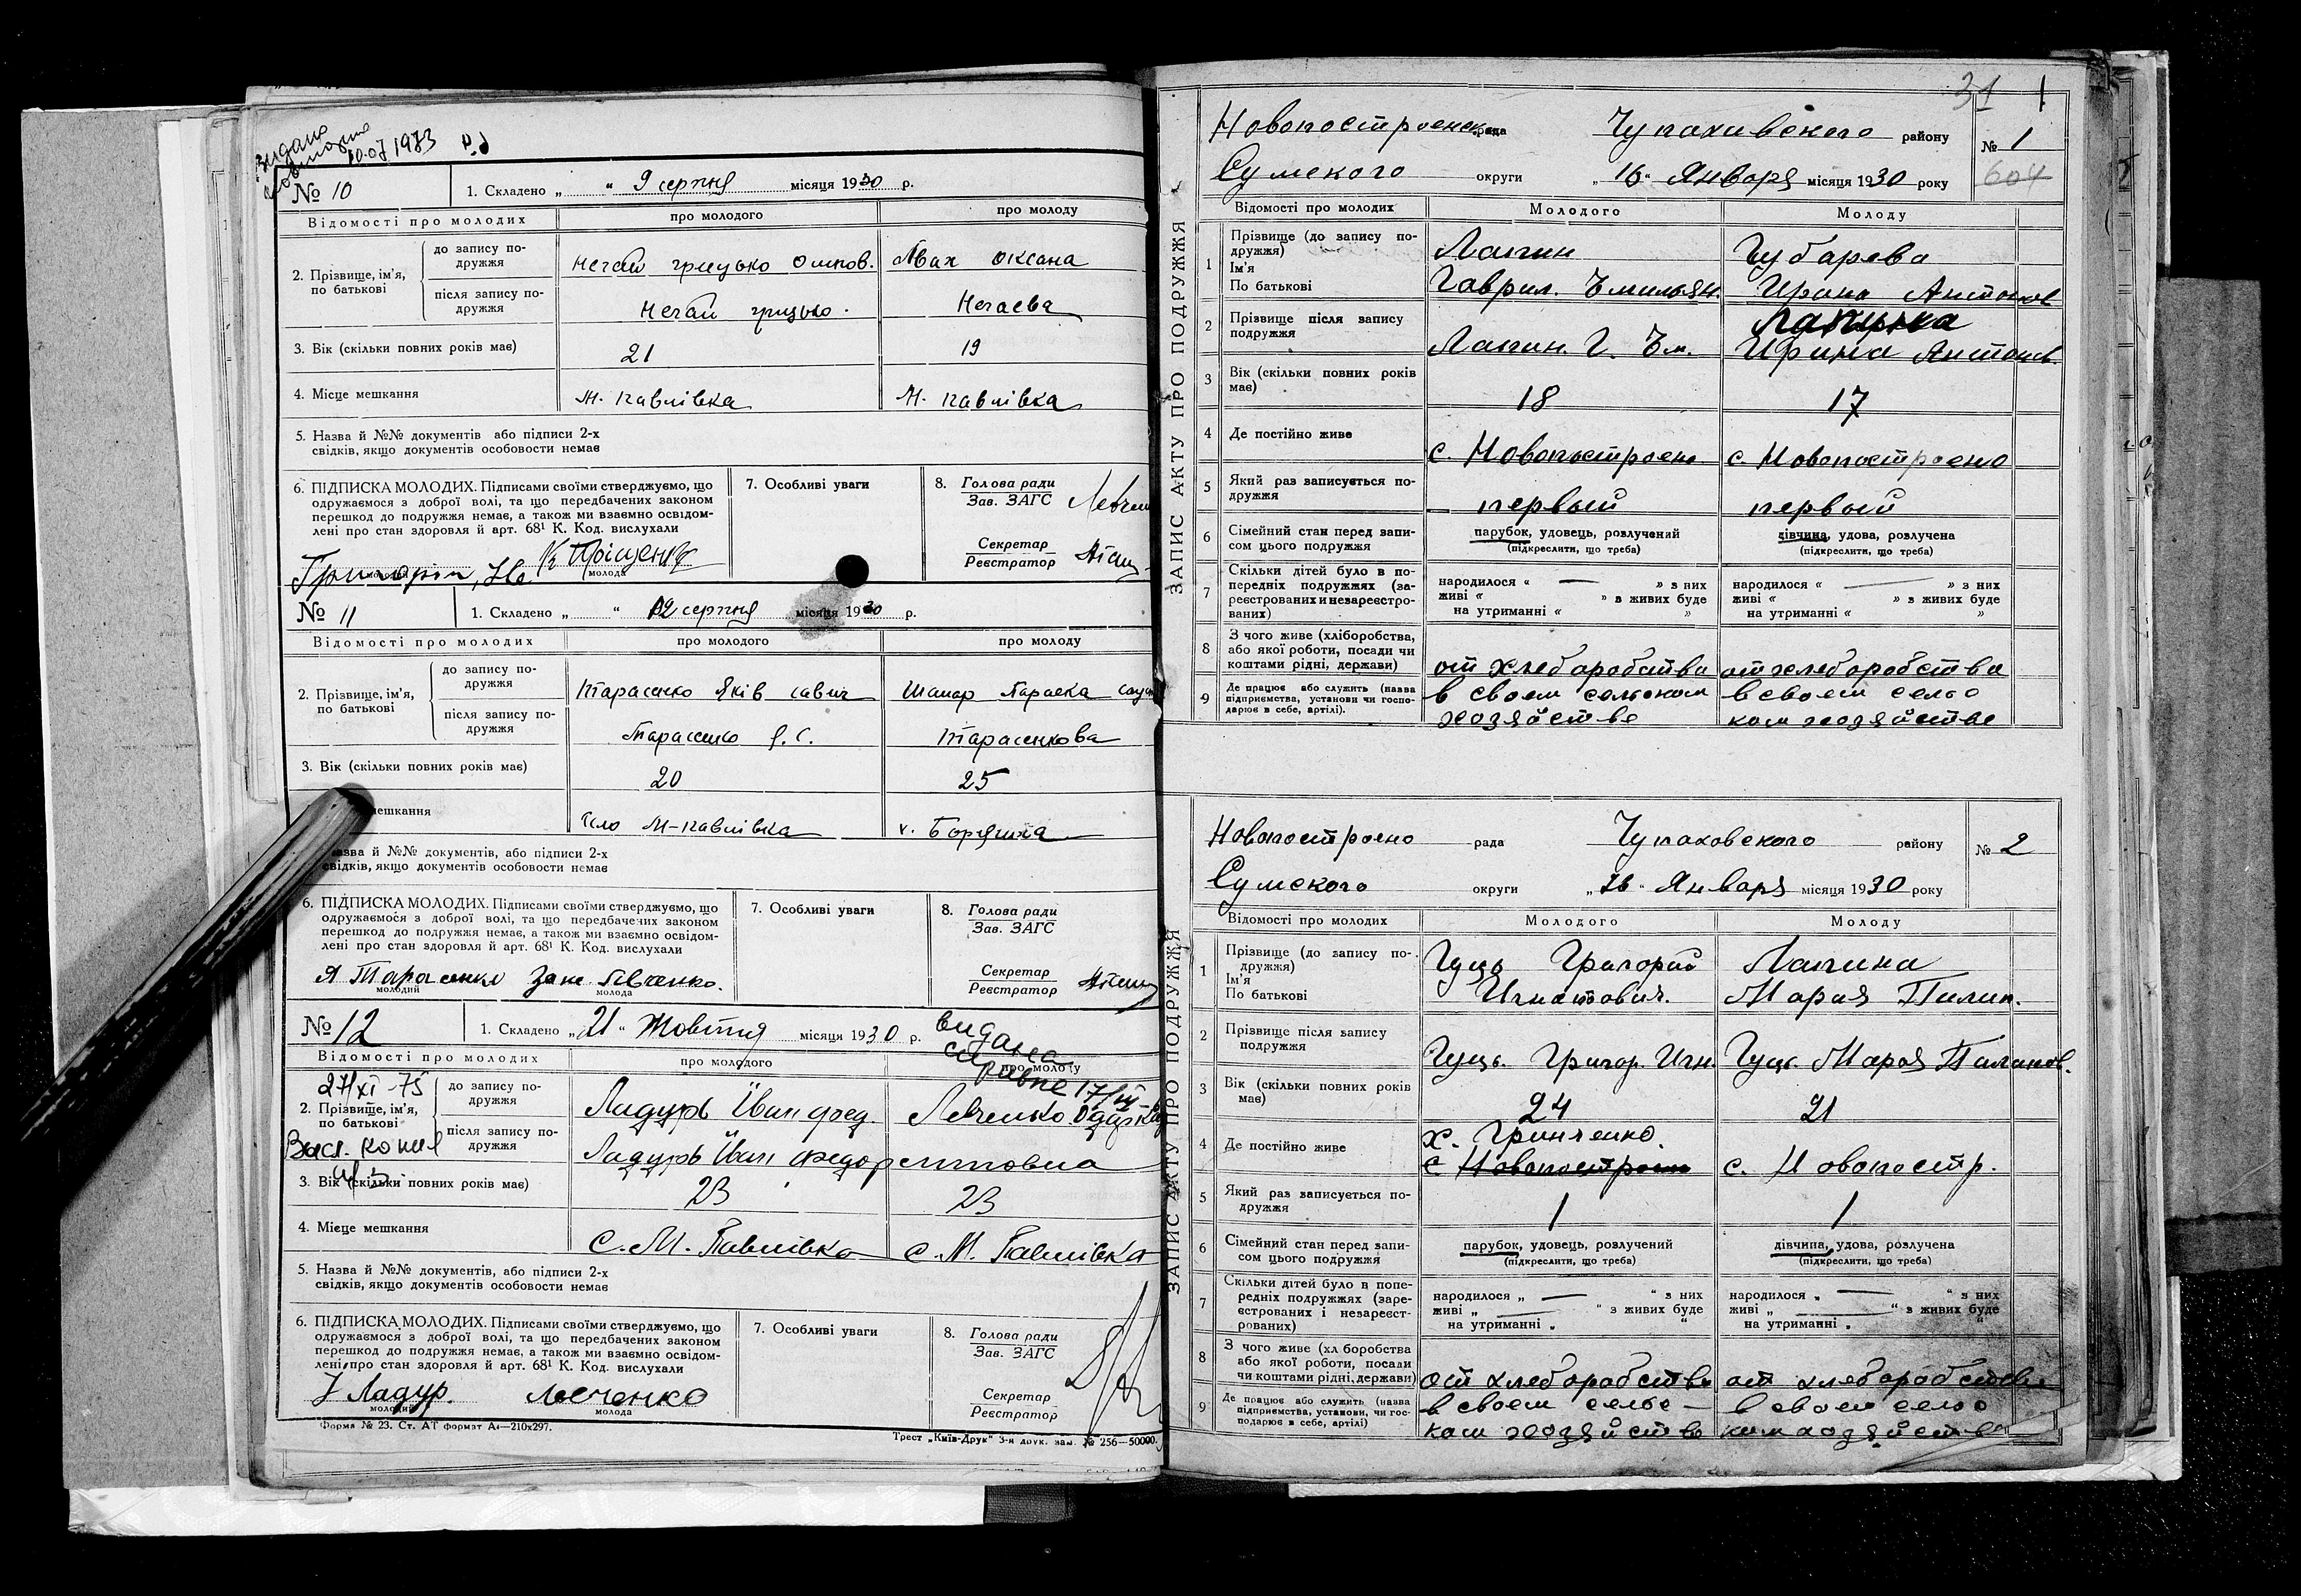 Видано
10.07.1973
№ 10
1. Складено „ “ 9 серпня місяця 1930 р.
Відомості про молодих
про молодого
про молоду
2. Прізвище, ім'я, по батькові
до запису подружжя
Нечай Грицько
Оксана
після запису подружжя
Нечай Грицько.
Нечаева
3. Вік (скільки повних років має)
21
19
4. Місце мешкання
М. Павлівка
М. Павлівка
5. Назва й №№ документів або підписи 2-х
свідків, якщо документів особовости немає
6. ПІДПИСКА МОЛОДИХ. Підписами своїми стверджуємо, що
одружаємося з доброї волі, та що передбачених законом
перешкод до подружжя немає, а також ми взаємно освідом-
лені про стан здоров'я й арт. 68¹ К. Код. вислухали
молодий
молода
7. Особливі уваги
8. Голова ради
Зав. ЗАГС
Секретар
Реєстратор
№ 11
1. Складено „ “ 12 серпня місяця 1930 р.
Відомості про молодих
про молодого
про молоду
2. Прізвище, ім'я, по батькові
до запису подружжя
Тарасенко Яків Савич
Параска
після запису подружжя
Тарасенко Я. С.
Тарасенкова
3. Вік (скільки повних років має)
20
25
мешкання
село М-Павлівка
х.
Назва й №№ документів, або підписи 2-х
свідків, якщо документів особовости немає
6. ПІДПИСКА МОЛОДИХ. Підписами своїми стверджуємо, що
одружаємося з доброї волі, та що передбачених законом
перешкод до подружжя немає, а також ми взаємно освідом-
лені про стан здоровля й арт. 68¹ К. Код. вислухали
Я Тарасенко
молодий
молода
7. Особливі уваги
8. Голова ради
Зав. ЗАГС
Секретар
Реєстратор
№ 12
1. Складено „21“ Жовтня місяця 1930 р.
видана
Відомості про молодих
про молодого
про молоду
27/XI-75
2. Прізвище, ім'я, по батькові
до запису подружжя
Ладур Іван Фед.
Левченко Одарка
після запису подружжя
Ладур Іван
3. Вік (скільки повних років має)
23
23
4. Місце мешкання
с. М. Павлівка
с. М. Павлівка
5. Назва й №№ документів, або підписи 2-х
свідків, якщо документів особовости немає
6. ПІДПИСКА МОЛОДИХ. Підписами своїми стверджуємо, що
одружаємося з доброї волі, та що передбачених законом
перешкод до подружжя немає, а також ми взаємно освідом-
лені про стан здоровля й арт. 68¹ К. Код. вислухали
Ладур.
молодий
молода
7. Особливі уваги
8. Голова ради
Зав. ЗАГС
Секретар
Реєстратор
Форма № 23. Ст. АТ формат А4—210х297.
Трест „Київ-Друк“ 3-я друк. зам. № 256—50000.
31 1
ЗАПИС АКТУ ПРО ПОДРУЖЖЯ
Новопостроенск рада Чупахивского району
№ 1
Сумского округи „16“ Января місяця 1930 року
604
Відомості про молодих
Молодого
Молоду
1
Прізвище (до запису подружжя)
Ім'я
По батькові
Лапин
Гаврил. Емильян.
Губарева
Ирина Антонов
2
Прізвище після запису подружжя
Лапин. Г. Ем.
Ирина Антонов.
3
Вік (скільки повних років має)
18
17
4
Де постійно живе
с. Новопостроено
с. Новопостроено
5
Який раз записується подружжя
первый
первый
6
Сімейний стан перед записом цього подружжя
парубок, удовець, розлучений
(підкреслити, що треба)
дівчина, удова, розлучена
(підкреслити, що треба)
7
Скільки дітей було в попередніх подружжях (зареєстрованих и незареєстрованих)
народилося « — » з них
живі « » в живих буде
на утриманні « »
народилося « — » з них
живі « » в живих буде
на утриманні « »
8
З чого живе (хліборобства, або якої роботи, посади чи коштами рідні, держави)
от хлеборобства
от хлеборобства
9
Де працює або служить (назва підприємства, установи чи господарює в себе, артілі).
в своем сельском
хозяйстве
в своем сельс
ком хозяйстве
ЗАПИС АКТУ ПРО ПОДРУЖЖЯ
Новопостроено рада Чупаховского району
№ 2
Сумского округи „16“ Января місяця 1930 року
Відомості про молодих
Молодого
Молоду
1
Прізвище (до запису подружжя)
Ім'я
По батькові
Гуць Григорий
Игнатович.
Лапина
Мария Пилип.
2
Прізвище після запису подружжя
Гуць. Григор. Игн.
Гуць. Мария
3
Вік (скільки повних років має)
24
21
4
Де постійно живе
х. Гринченко.
с Новопостроено
с. Новопостр.
5
Який раз записується подружжя
1
1
6
Сімейний стан перед записом цього подружжя
парубок, удовець, розлучений
(підкреслити, що треба)
дівчина, удова, розлучена
(підкреслити, що треба)
7
Скільки дітей було в попередніх подружжях (зареєстрованих і незареєстрованих)
народилося „ — “ з них
живі „ “ з живих буде
на утриманні „ “
народилося „ — “ з них
живі „ “ з живих буде
на утриманні „ “
8
З чого живе (хл боробства або якої роботи, посади чи коштами рідні, держави)
от хлеборобства
от хлеборобства
9
Де працює або служить (назва підприємства, установи, чи господарює в себе, артілі)
в своем сельс-
ком хозяйстве
в своем сельс
ком хозяйстве